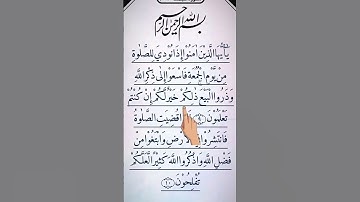 بسم الله الرحمن الرحيم
يٰٓاَيُّهَا الَّذِيْنَ اٰمَنُوْٓا اِذَا نُوْدِيَ لِلصَّلٰوةِ
مِنْ يَّوْمِ الْجُمُعَةِ فَاسْعَوْا اِلٰى ذِكْرِ اللّٰهِ
وَذَرُوا الْبَيْعَ ذٰلِكُمْ خَيْرٌ لَّكُمْ اِنْ كُنْتُمْ
تَعْلَمُوْنَ ﴿٩﴾ قُضِيَتِ الصَّلٰوةُ
فَانْتَشِرُوْا الْاَرْضِ وَابْتَغُوْا مِنْ
فَضْلِ اللّٰهِ وَاذْكُرُوا اللّٰهَ كَثِيْرًا لَّعَلَّكُمْ
تُفْلِحُوْنَ ﴿١٠﴾